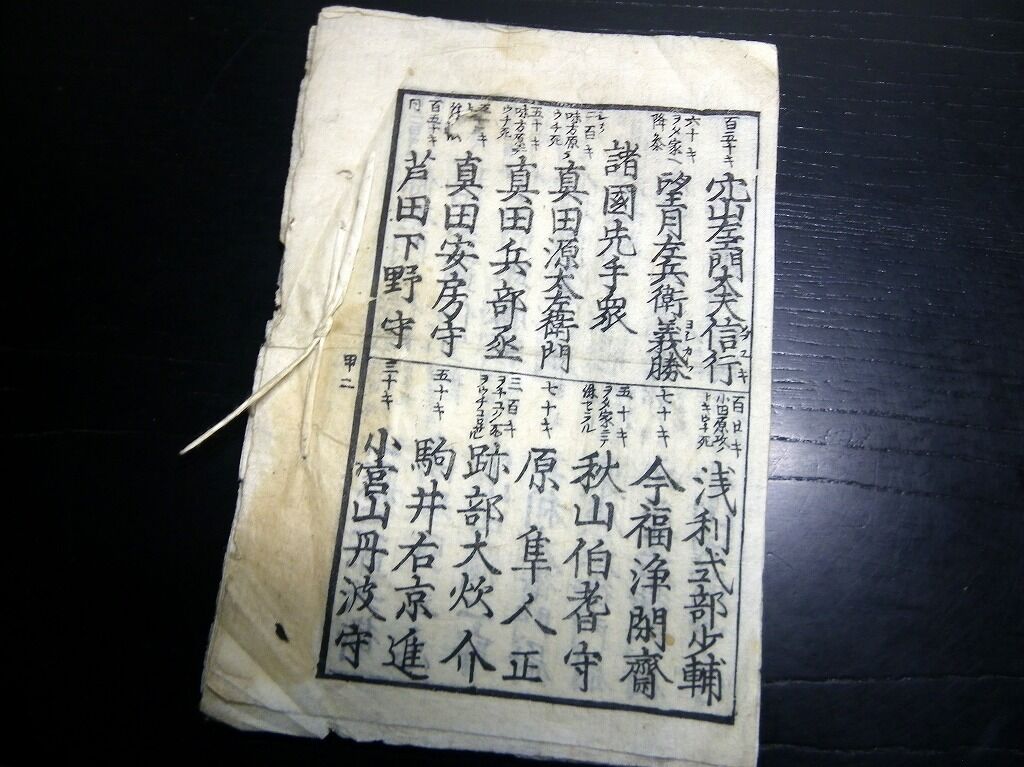 百五十キ
穴山左衛門太夫信行
ユキ
六十キ
ヲタ家ヘ
降参
望月左兵衛義勝
ヨシカツ
諸國先手衆
二百キ
味方原ニ
ウチ死
真田源太左衛門
五十キ
味方原ニ
ウチ死
真田兵部丞
五十キ
真田安房守
百五十キ
芦田下野守
百廿キ
小田原ノ
トキウチ死
浅利式部少輔
七十キ
今福浄閑齋
五十キ
ヲタ家ニ
秋山伯耆守
七十キ
原隼人正
三百キ
跡部大炊介
五十キ
駒井右京進
三十キ
小宮山丹波守
甲二